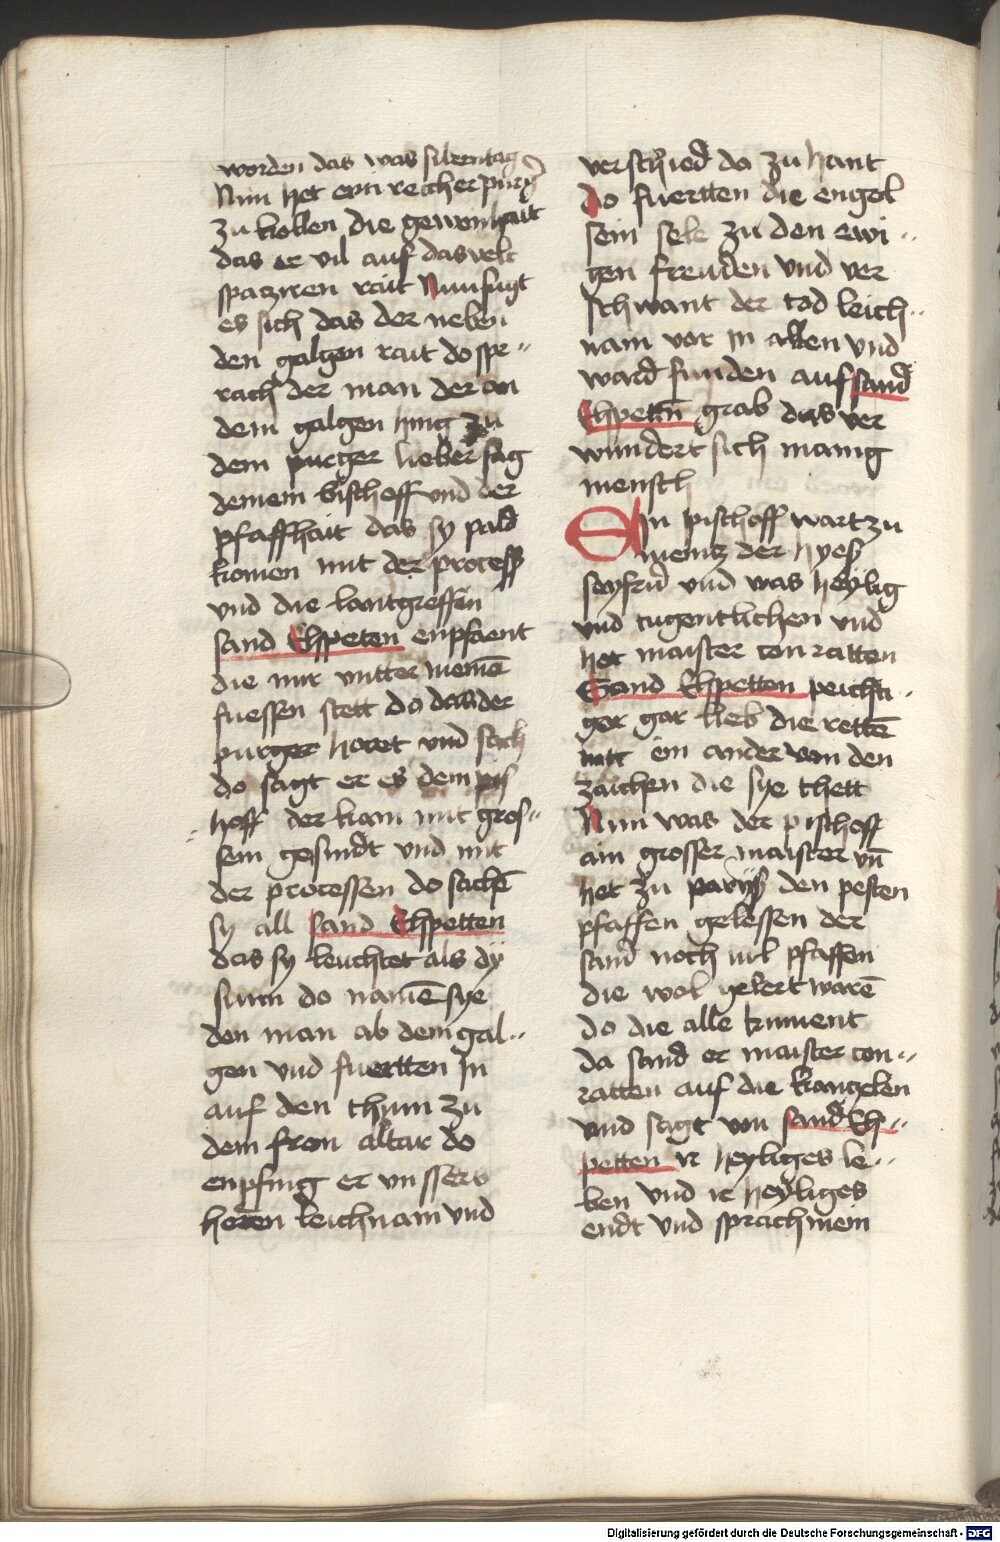 worden das was siben tag
Nun het ein reicher purg̃
zu kollen die gewonhait
das er vil auf das velt
spaziren rait Nun fugt
es sich das der neben
den galgen rait do spr
rach der man der an
dem galgen hing zu
dem purger lieber sag
deinem bischoff und der
pfaffhait das sy pald
komen mit der process
und die lantgreffin
sand Elspeten enpfaent
die mir untter meinē
fuessen stett do das der
purger horet und sach
do sagt er es dem pis
hoff der kam mit gros
sem gesindt und mit
der processen do sachē
sy all sand Elspetten
das sy leuchtet als dÿ
sunn do namē sye
den man ab dem gal
gen und fuertten In
auf den thum zu
dem fron altar do
enpfing er unssers
heren leichnam und
verschied da zu hant
do fuertten die engel
sein sele zu den ewi
gen freuden und ver
schwant der tod leich
nam vor in allen und
ward funden auf sand
Elspetñ grab das ver
wundert sich manig
mensch
Ein pischoff wart zu
meintz der hyess
seyfrid und was heylig
und tugentlichen und
het maister conratten
Sand Elspetten peichti
ger gar lieb die rettē
mit ein ander von den
zaichen die sye thett
Nun was der pischoff
ain grosser maister uñ
het zu pariss den pesten
pfaffen gelessen der
sand noch vil pfaffen
die wol gelert warē
do die alle kument
da sand er maister con
ratten auf die kanzelen
und sagt von sand Els
petten ir heyliges le
ben und ir heyliges
endt und sprach mein
Digitalisierung gefördert durch die Deutsche Forschungsgemeinschaft - DFG